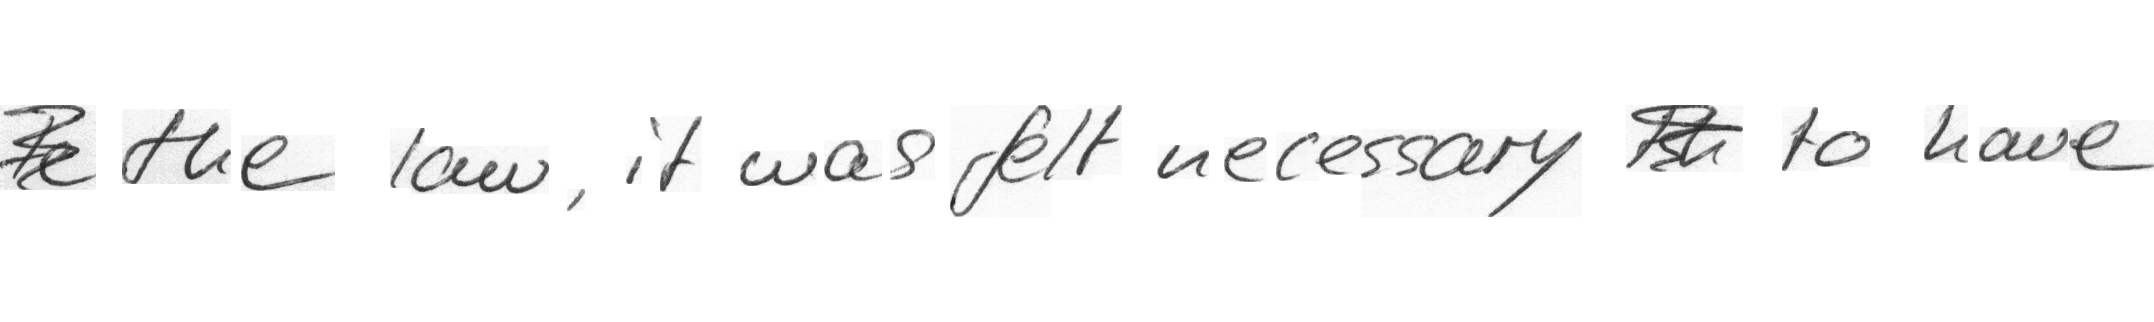 the law, it was felt necessary to have